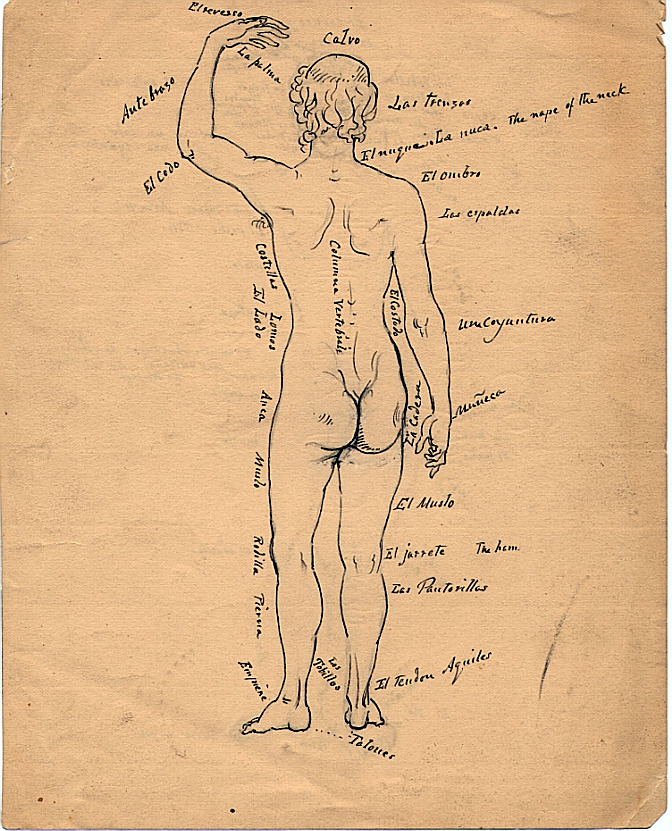 El reverso
La palma
Calvo
Antebrazo
Las trenzas
El nuque. La nuca. The nape of the neck
El Codo
El ombro
Las espaldas
Costillas
Columna Vertebrale
El Lado
Lomos
El Costado
Una Coyuntura
Anca
La Cadera
Muñeca
Muslo
El Muslo
Rodilla
El jarrete The ham.
Las Pantorillas
Pierna
Empeine
Los Tobillos
El Tendon Aquiles
Talones